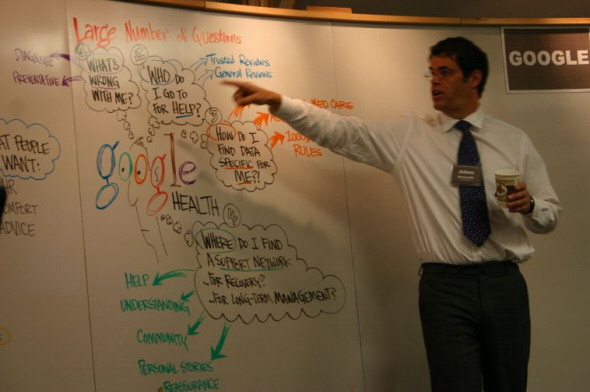 Large Number of Questions
DIAGNOSE
PREVENTATIVE
WHAT'S
WRONG
WITH ME?
WHO DO
I GO TO
FOR HELP?
Trusted Reviews
General Reviews
HOW DO I
FIND DATA
SPECIFIC FOR
ME?!
MED CARE
RULES
google
HEALTH
AT PEOPLE
WANT:
ADVICE
WHERE DO I FIND
A SUPPORT NETWORK
...FOR RECOVERY?
...FOR LONG-TERM MANAGEMENT?
HELP
UNDERSTANDING
COMMUNITY
PERSONAL STORIES
REASSURANCE
GOOGLE